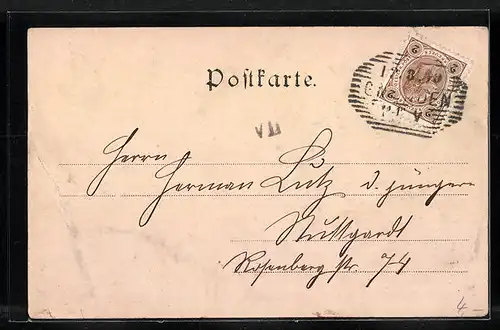 Postkarte.
VII
Herrn
Herman Lutz d. jüngere
Stuttgardt
Rosenberg str. 74
4,-